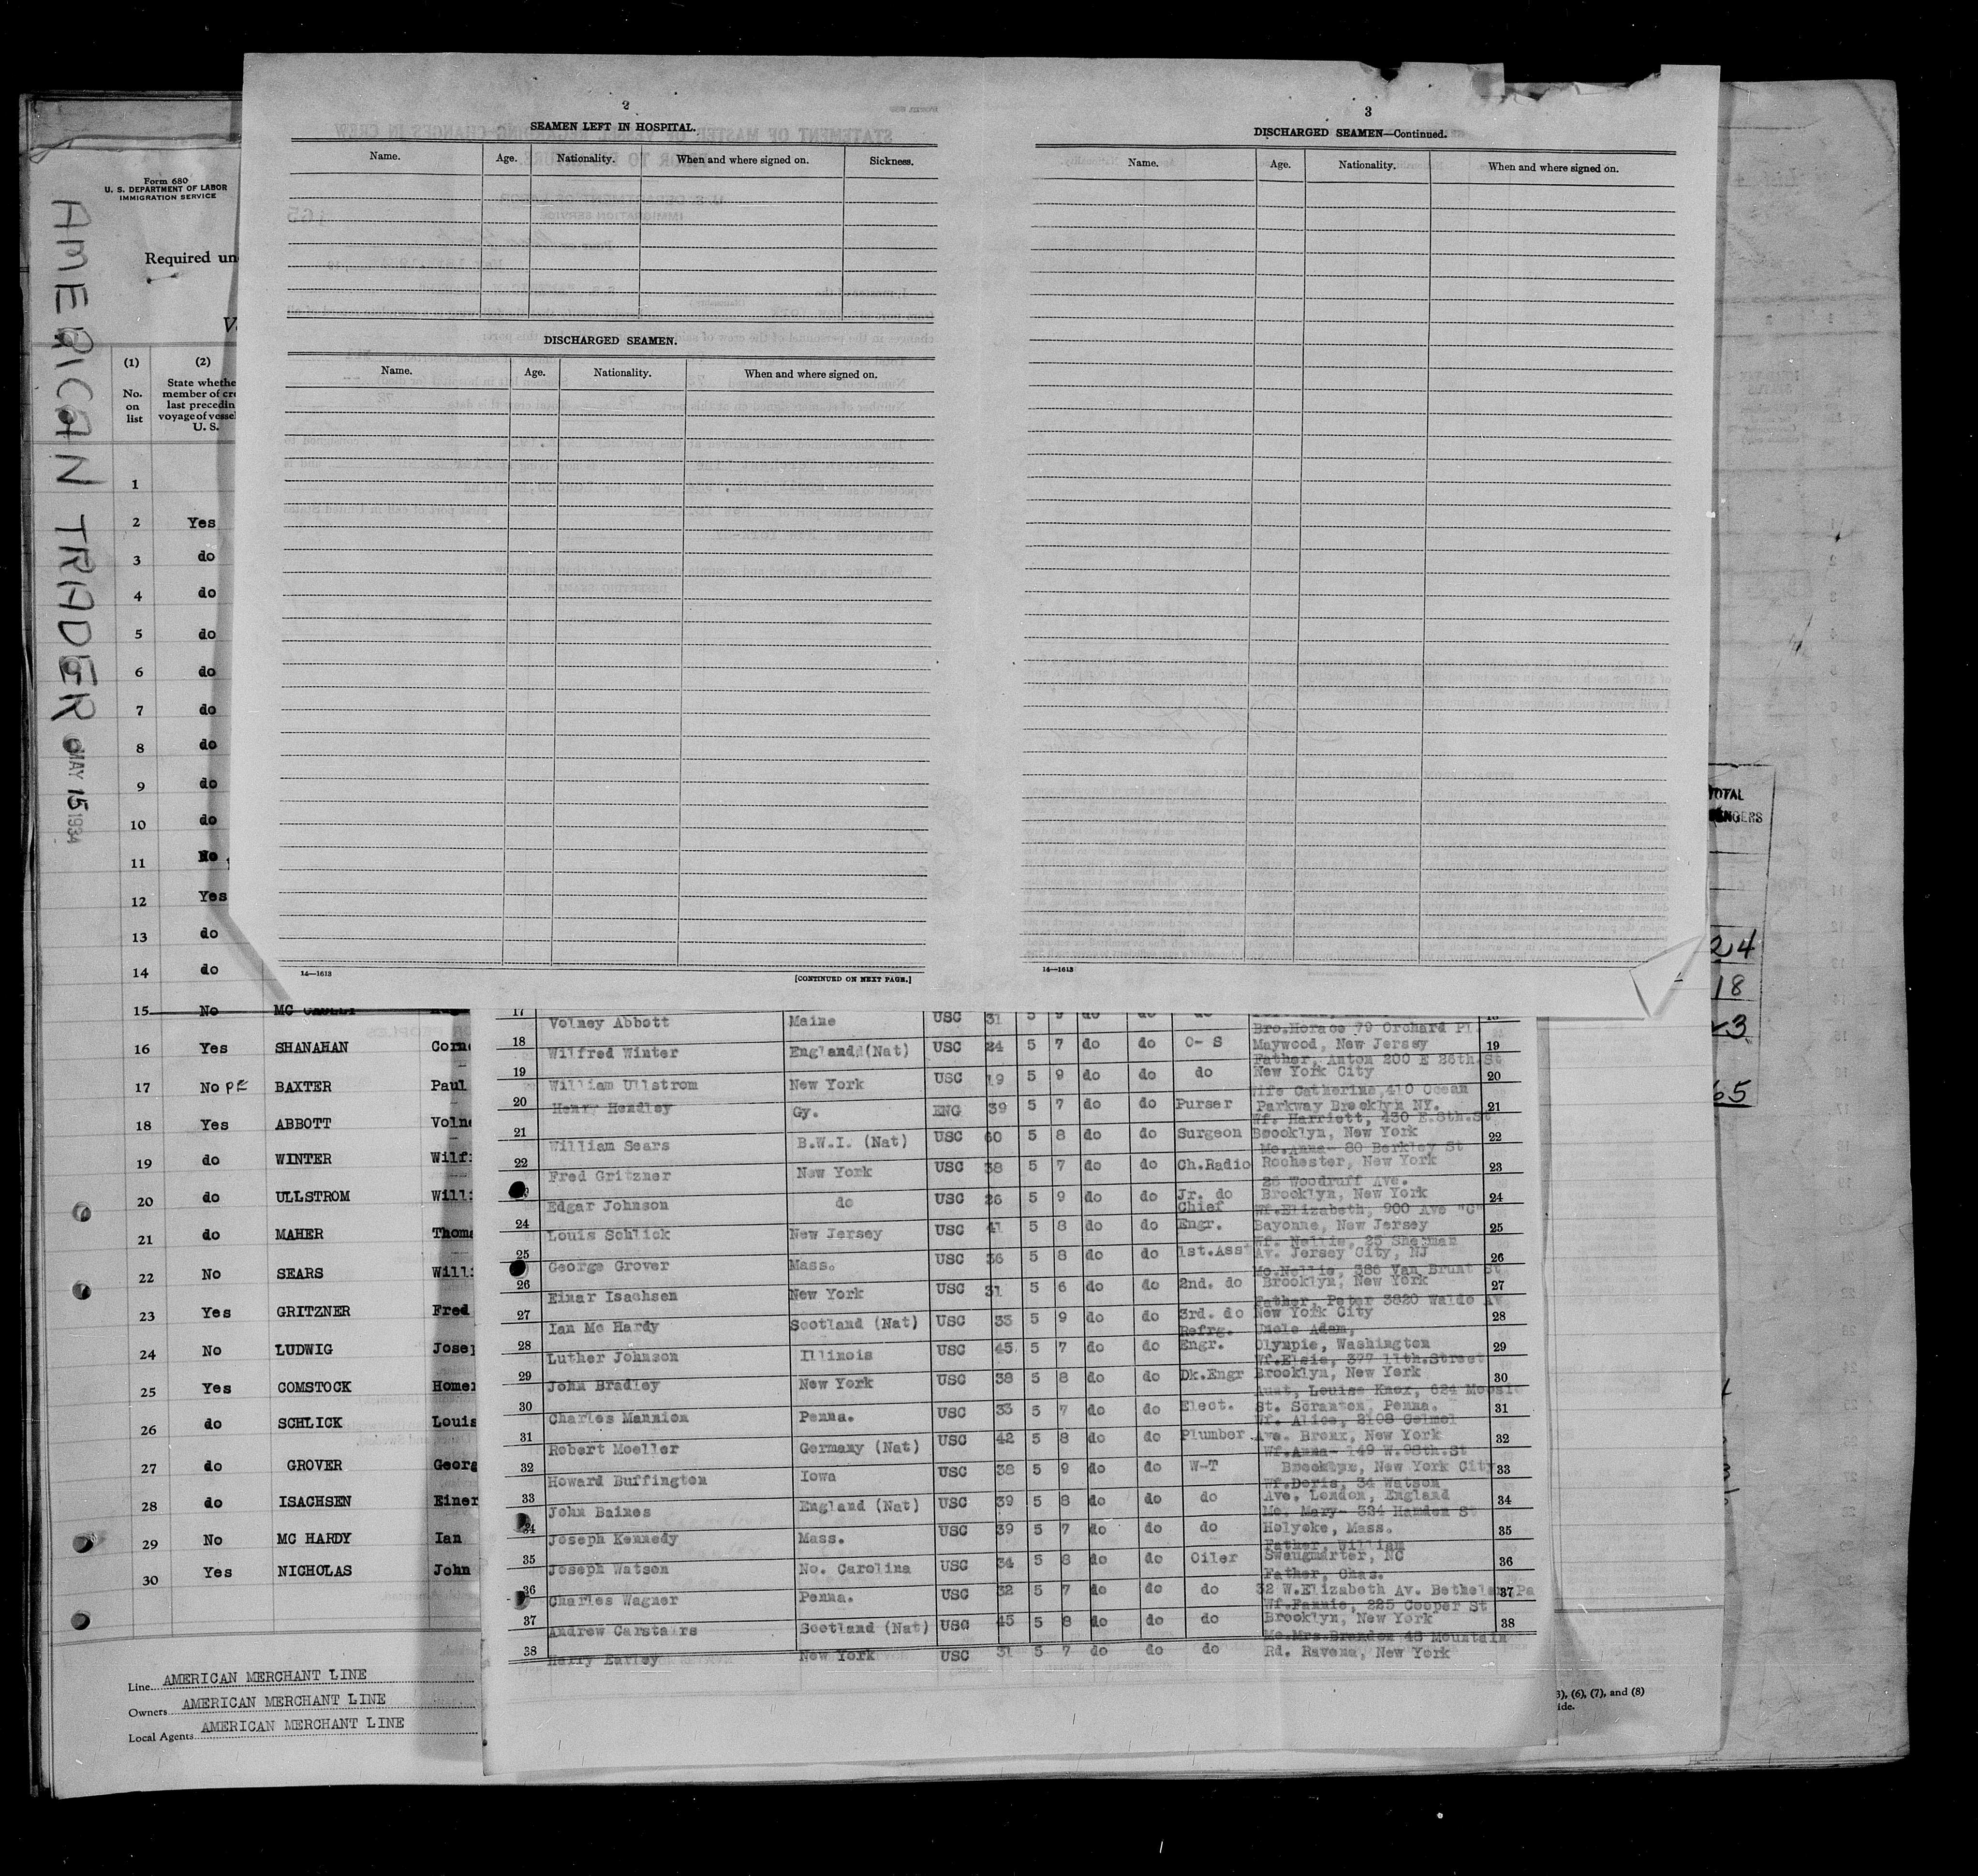 AMERICAN TRADER MAY 15 1934
Form 680
U. S. DEPARTMENT OF LABOR
IMMIGRATION SERVICE
Required un
(1) (2)
No. on list
State whethe
member of cre
last precedin
voyage of vesse
U. S.
1
2 Yes
3 do
4 do
5 do
6 do
7 do
8 do
9 do
10 do
11 No
12 Yes
13 do
14 do
15 No MC
16 Yes SHANAHAN Corn
17 No PE BAXTER Paul
18 Yes ABBOTT Voln
19 do WINTER Wilf
20 do ULLSTROM Willi
21 do MAHER Thoma
22 No SEARS Willi
23 Yes GRITZNER Fred
24 No LUDWIG Josep
25 Yes COMSTOCK Homer
26 do SCHLICK Louis
27 do GROVER Georg
28 do ISACHSEN Einer
29 No MC HARDY Ian
30 Yes NICHOLAS John
Line AMERICAN MERCHANT LINE
Owners AMERICAN MERCHANT LINE
Local Agents AMERICAN MERCHANT LINE
2
SEAMEN LEFT IN HOSPITAL.
Name. Age. Nationality. When and where signed on. Sickness.
DISCHARGED SEAMEN.
Name. Age. Nationality. When and where signed on.
14—1613
[CONTINUED ON NEXT PAGE.]
3
DISCHARGED SEAMEN—Continued.
Name. Age. Nationality. When and where signed on.
14—1613
17 Volney Abbott Maine USC 31 5 9 do do do
Bro.Horace 79 Orchard Pl.
18 Wilfred Winter England(Nat) USC 24 5 7 do do O- S Maywood, New Jersey 19
Father, Anton 200 E 26th.St
19 William Ullstrom New York USC 19 5 9 do do do New York City 20
Wife Catherine,410 Ocean
20 Henry Hendley Gy. ENG 39 5 7 do do Purser Parkway Brooklyn NY. 21
Wf. Harriett, 430 E.8th.St
21 William Sears B.W.I. (Nat) USC 60 5 8 do do Surgeon Brooklyn, New York 22
Mo.Anna- 80 Berkley St
22 Fred Gritzner New York USC 38 5 7 do do Ch.Radio Rochester, New York 23
25 Woodruff Ave.
Edgar Johnson do USC 26 5 9 do do Jr. do Brooklyn, New York 24
Chief Wf.Elizabeth, 900 Ave "C"
24 Louis Schlick New Jersey USC 41 5 8 do do Engr. Bayonne, New Jersey 25
Wf. Nellie, 25 Sherman
25 George Grover Mass. USC 36 5 8 do do 1st.Ass Av. Jersey City, NJ 26
Mo.Nellie, 386 Van Brunt St
26 Einar Isachsen New York USC 31 5 6 do do 2nd. do Brooklyn, New York 27
Father, Peter 3820 Waldo Av
27 Ian Mc Hardy Scotland (Nat) USC 33 5 9 do do 3rd. do New York City 28
Refrg. Uncle Adam,
28 Luther Johnson Illinois USC 45 5 7 do do Engr. Olympic, Washington 29
Wf.Elsie, 377 11th.Street
29 John Bradley New York USC 38 5 8 do do Dk.Engr Brooklyn, New York 30
Aunt, Louise Knox, 624 Moosic
30 Charles Mannion Penna. USC 33 5 7 do do Elect. St. Scranton, Penna. 31
Wf. Alice, 2108
31 Robert Moeller Germany (Nat) USC 42 5 8 do do Plumber Ave. Bronx, New York 32
Wf.Anna- 149 W.98th.St
32 Howard Buffington Iowa USC 38 5 9 do do W-T Brooklyn, New York City 33
Wf.Doris, 34 Watson
33 John Baines England (Nat) USC 39 5 8 do do do Ave. London, England 34
Mo. Mary- 334 Hamden St
34 Joseph Kennedy Mass. USC 39 5 7 do do do Holyoke, Mass. 35
Father, William
35 Joseph Watson No. Carolina USC 34 5 8 do do Oiler Swaugmarter, NC 36
Father, Chas.
36 Charles Wagner Penna. USC 32 5 7 do do do 32 W.Elizabeth Av. Bethelem Pa 37
Wf.Fannie, 225 Cooper St
37 Andrew Carstairs Scotland (Nat) USC 45 5 8 do do do Brooklyn, New York 38
Mo.Mrs.Brandon 48 Mountain
38 Harry Earley New York USC 31 5 7 do do do Rd. Ravena, New York
TOTAL
24
18
65
(6), (7), and (8)
ide.